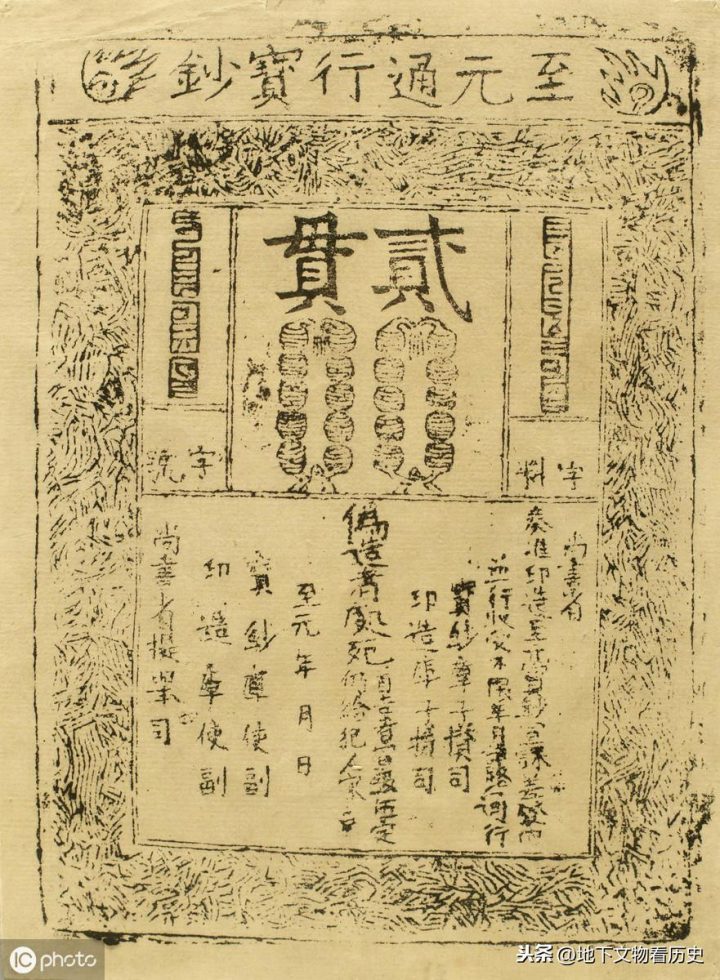 至元通行寶鈔
貳貫
字料
字號
尚書省
奏准印造至元寶鈔宣課差役內
並行收受不限年月諸路通行
寶鈔庫子攢司
印造庫子攢司
偽造者處死
仍給犯人家
至元 年 月 日
寶鈔庫使副
印造庫使副
尚書省提舉司
iC photo
头条 @地下文物看历史